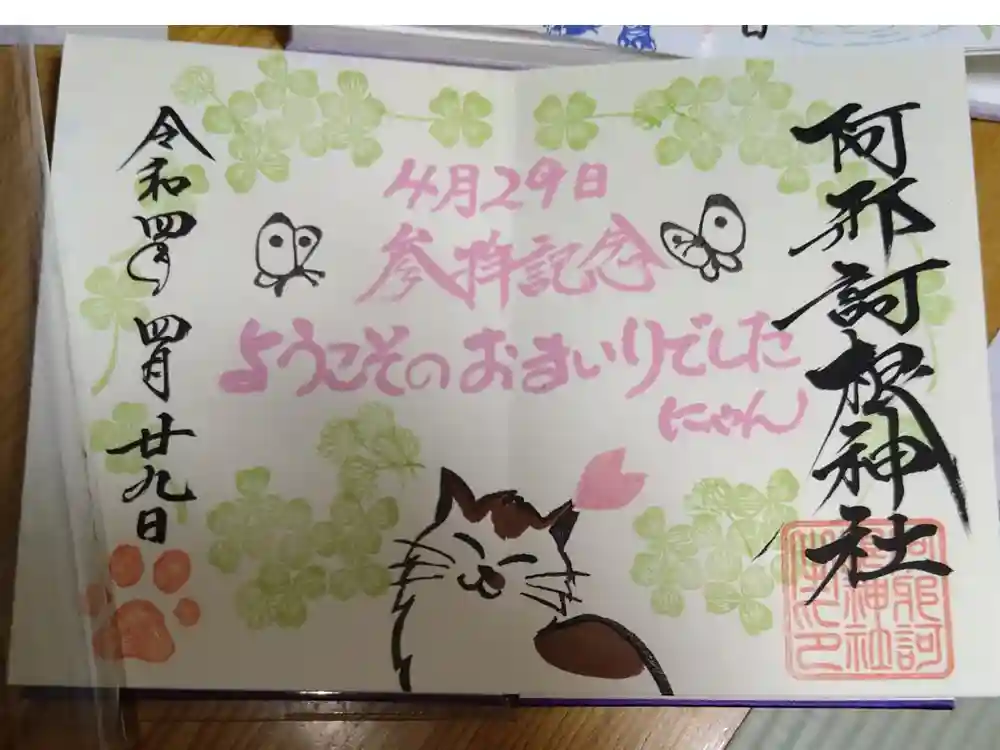 阿邪訶根神社
4月29日
参拝記念
ようこそのおまいりでした
にゃん
令和四年
四月
廿九日